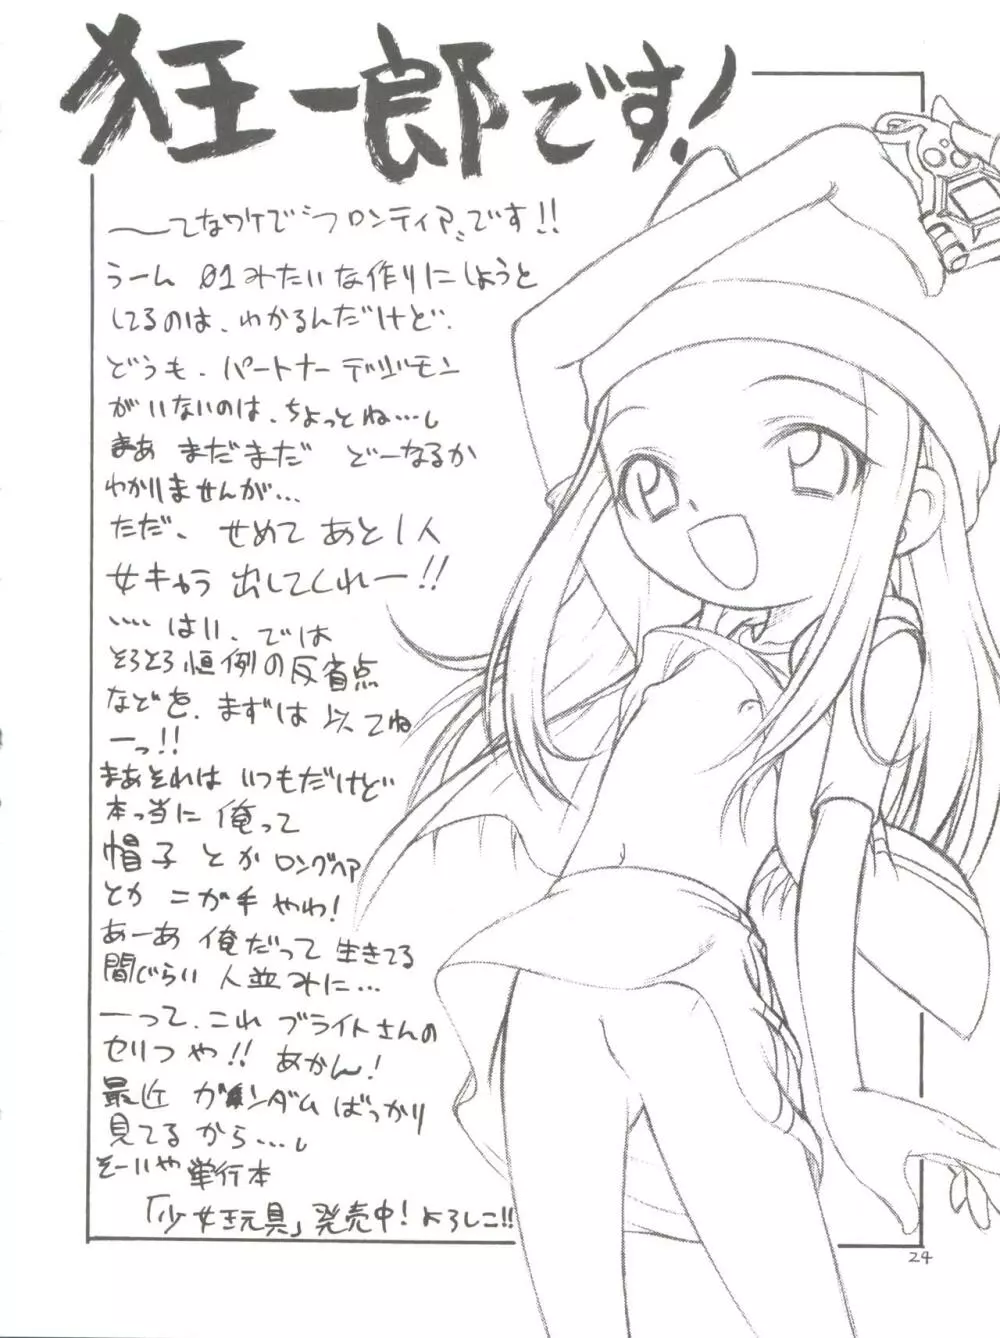 狂一郎です!
〜てなワケで"フロンティア"です!!
うーん 01みたいな作りにしようと
してるのは、わかるんだけど、
どうも、パートナーデジモン
がいないのは、ちょっとね…。
まあ まだまだ どーなるか
わかりませんが…
ただ、せめて あと1人
女キャラ 出してくれー!!
…… はい、では
そろそろ恒例の反省点
などを、まずは 以
ーっ!!
まあそれは いつもだけど
本っ当に 俺って
帽子 とか ロングヘア
とか ニガ手 やわ!
あーあ 俺だって 生きてる
間じらい 人並みに…
ーって、これ ブライトさんの
セリフや!! あかん!
最近 ガンダム ばっかり
見てる から…。
そーいや 単行本
「少女玩具」発売中! よろしこ!!
24